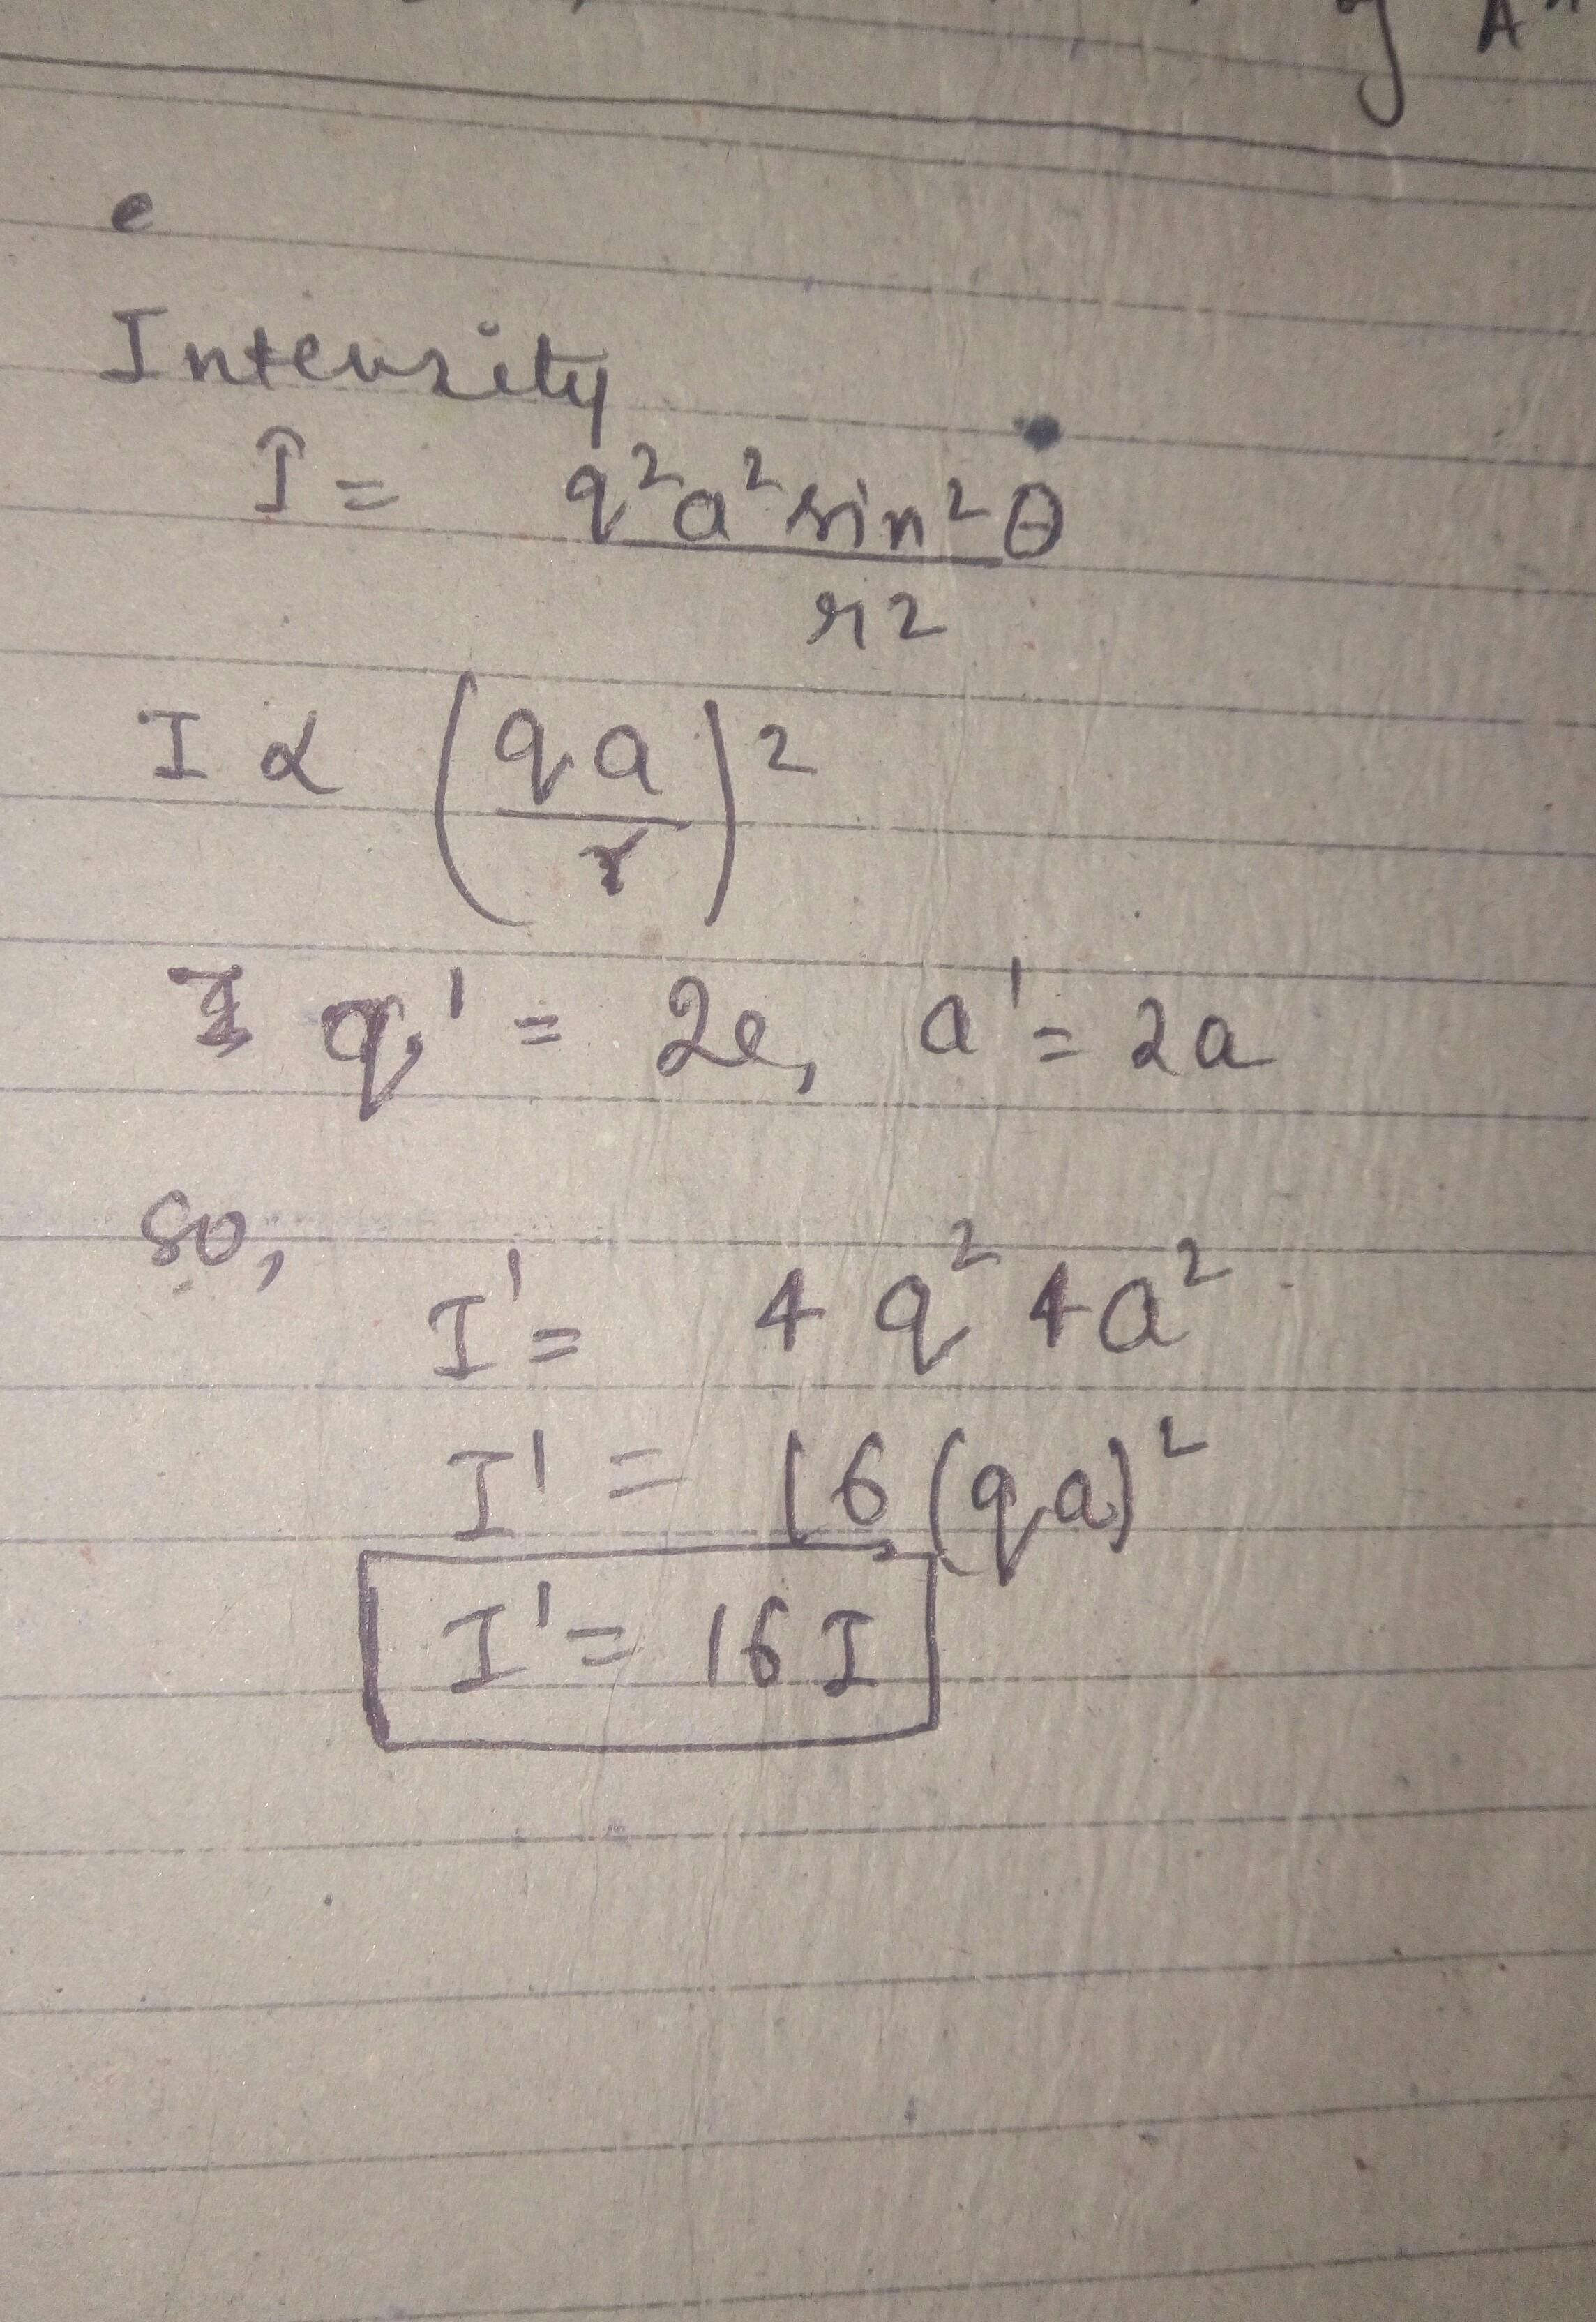 e
Intensity
I = q²a² sin²θ / r²
I α (qa / r)²
q' = 2e, a' = 2a
so,
I' = 4 q² 4a²
I' = 16 (qa)²
I' = 16 I